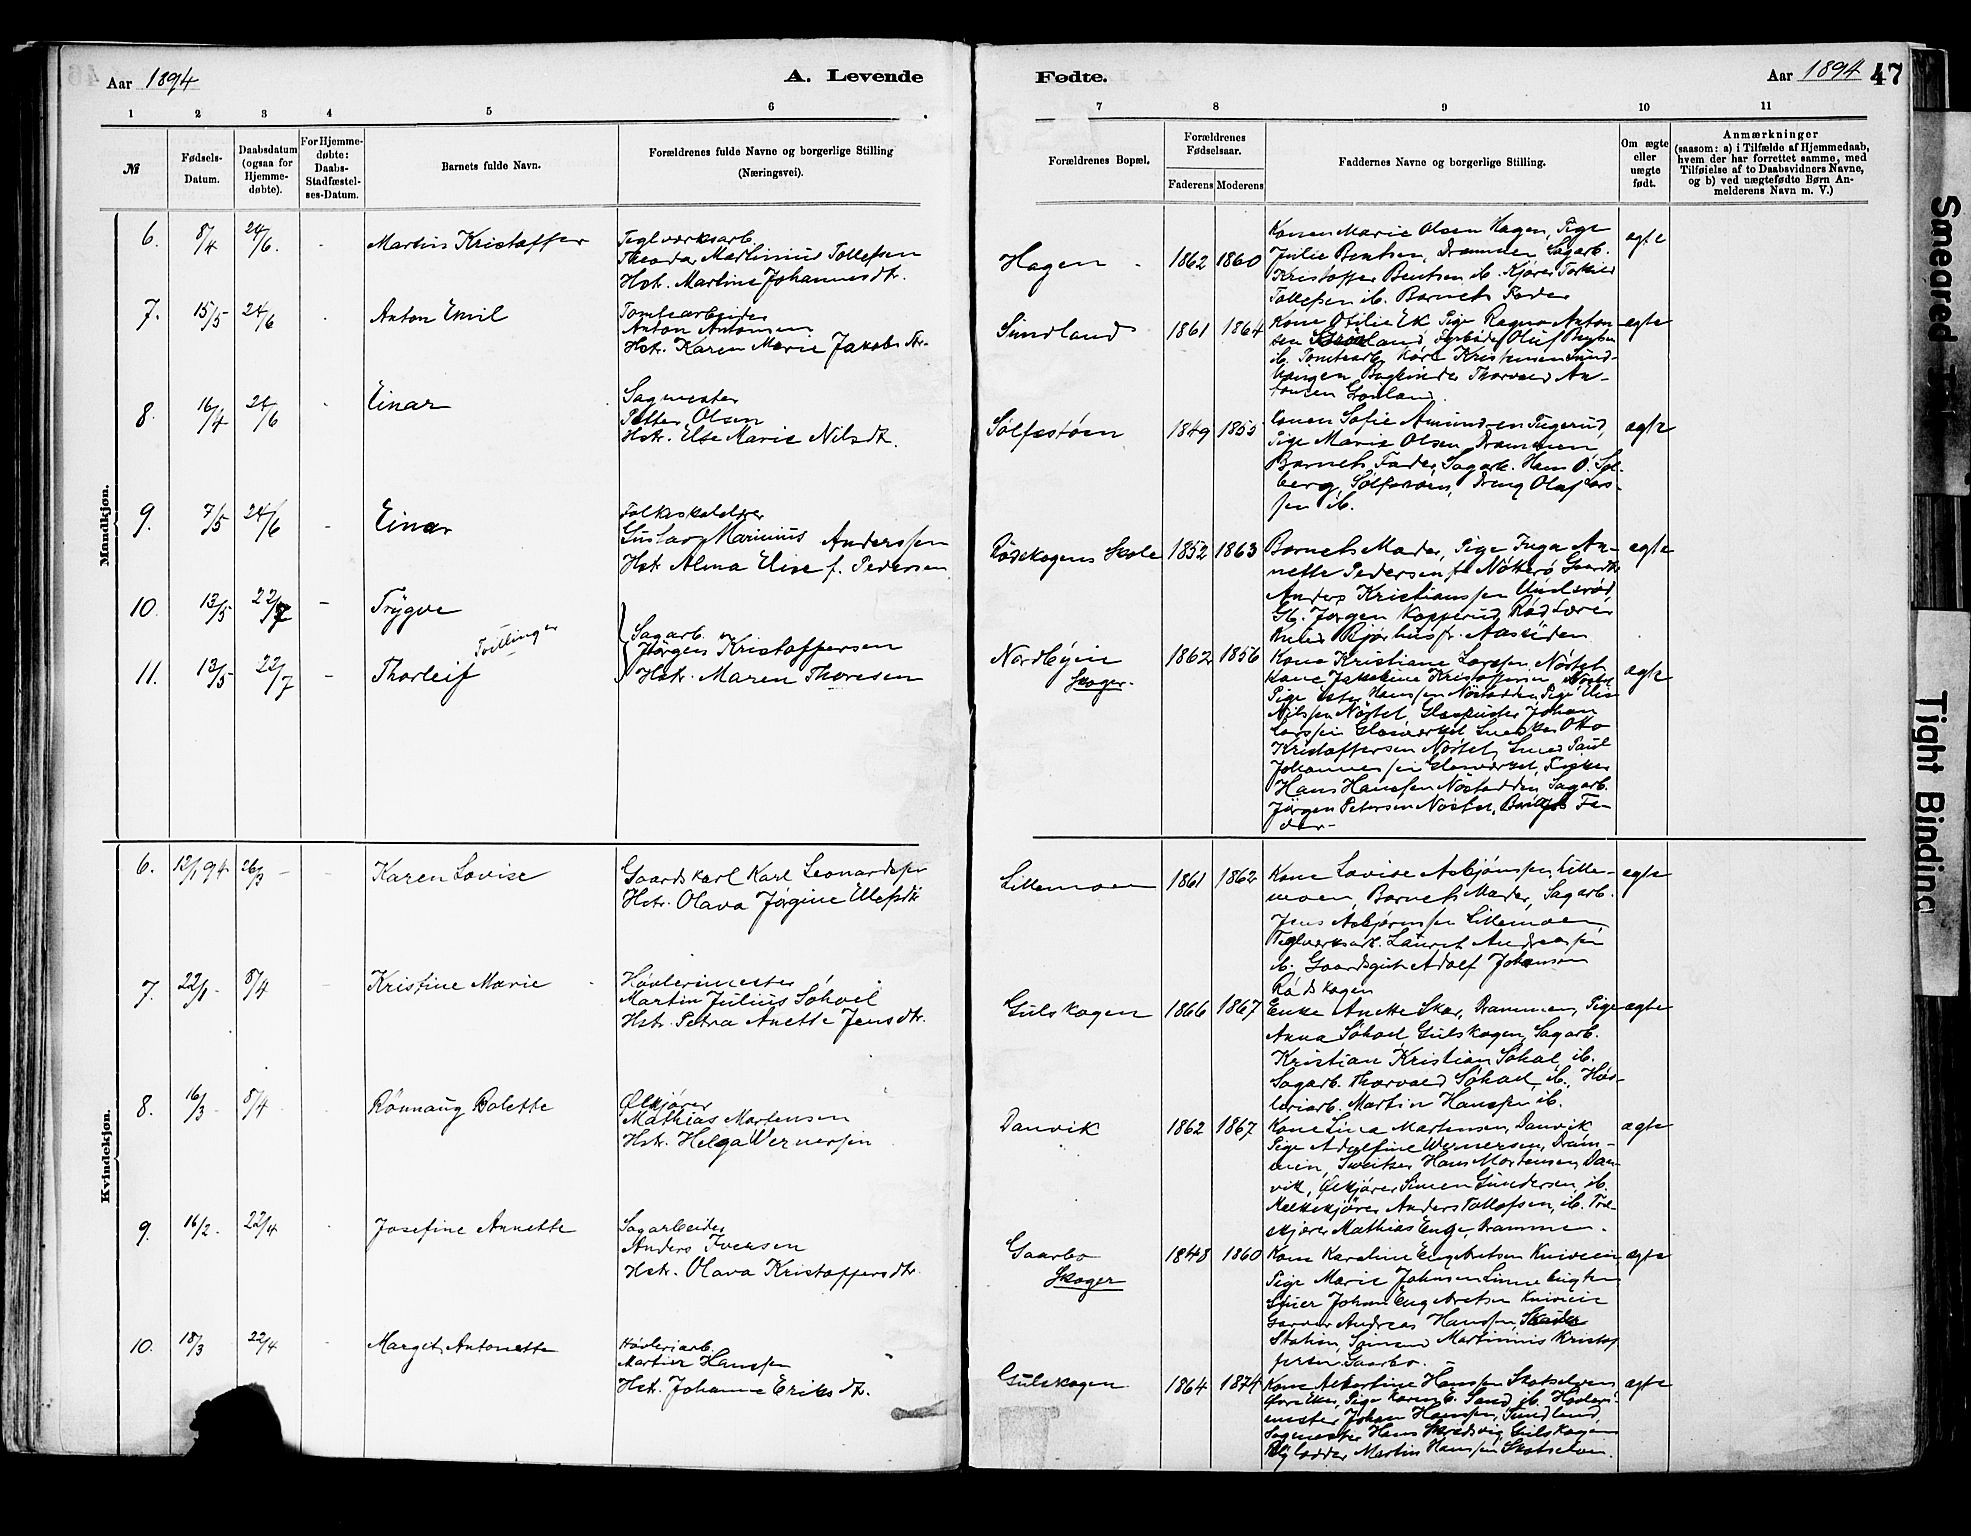 Aar 1894
A. Levende
Fødte.
Aar 1894 47
1 2 3 4 5 6 7 8 9 10 11
№
Fødsels-
Datum.
Daabsdatum
(ogsaa for
Hjemme-
døbte).
For Hjemme-
døbte:
Daabs-
Stadfæstel-
ses-Datum.
Barnets fulde Navn.
Forældrenes fulde Navne og borgerlige Stilling
(Næringsvei).
Forældrenes Bopæl.
Forældrenes
Fødselsaar.
Faderens Moderens
Faddernes Navne og borgerlige Stilling.
Om ægte
eller
uægte
født.
Anmærkninger
(saasom: a) i Tilfælde af Hjemmedaab,
hvem der har forrettet samme, med
Tilføielse af to Daabsvidners Navne,
og b) ved uægtefødte Børn An-
melderens Navn m. V.)
Mandkjøn.
6. 8/4 24/6 - Martin Kristoffer
Teglværksarb.
Theodor Martinius Tollefsen
Hst. Martine Johannesdt.
Hagen - 1862 1860
Konen Marie Olsen Hagen, Pige
Julie Bentsen, Drammen, Sagarb.
Kristoffer Bentsen ib. Kjører Torkild
Tollefsen ib. Barnets Fader
ægte
7. 15/5 24/6 - Anton Emil
Tomtearbeider
Anton Antonsen
Hst. Karen Marie Jakobsdtr.
Sundland 1861 1864
Kone Otilie Ek, Pige Ragna Anton-
sen Grønland, Fyrbøder Oluf
ib. Tomtearb. Karl Kristensen Sund-
Bogbinder Thorvald An-
tonsen Grønland.
ægte
8. 16/4 24/6 - Einar
Sagmester
Petter Olsen
Hst. Else Marie Nilsdt.
Solfestøen 1849 1855
Konen Sofie Amundsen
Pige Marie Olsen, Drammen
Barnets Fader, Sagarb. Hans O. Sol-
berg, Dreng Olaf Lars-
sen ib.
ægte
9. 7/5 24/6 - Einar
Folkeskolelærer
Gustav Marinius Anderssen
Hst. Alma Elise f. Pedersen
Rødskogens Skole 1852 1863
Barnets Moder, Pige Inga An-
nette Pedersen fr. Nøtterø Gaardbr.
Anders Kristianssen
Gb. Jørgen Kopperud, Rød Lærer
Knud Bjørhus fr. Aassiden
ægte
10. 13/5 22/7 - Trygve
Tvillinger
11. 13/5 22/7 - Thorleif
Sagarb.
Jørgen Kristoffersen
Hst. Maren Thoresen
Nordbyen
Skoger.
1862 1856
Kone Kristiane Larssen, Nøstet
Kone Jakobine Kristoffersen Nøstet
Pige Hanssen Nøstodden, Pige
Nilssen Nøstet, Glaspuster Johan
Larssen Glasværket Snedker Otto
Kristoffersen Nøstet, Smed Paul
Johannessen Glasværket, Fisker
Hans Hanssen Nøstodden, Sagarb.
Jørgen Petersen Nøstet, Barnets Fa-
der -
ægte
Kvindekjøn.
6. 12/1 94 26/3 - - Karen Lovise
Gaardskarl Karl Leonardssen
Hstr. Olava Jørgine
Lillemoen 1861 1862
Kone Lovise Asbjørnsen, Lille-
moen, Barnets Moder, Sagarb.
Jens Asbjørnssen Lillemoen
Teglverksarb. Laurit Andreassen
ib. Gaardsgut Adolf Johansen
Rødskogen
ægte
7. 22/1 - 8/4 - Kristine Marie
Høvlerimester
Martin Julius Solvel
Hst. Petra Anette Jensdtr.
Gulskogen 1866 1867
Enke Anette Skar, Drammen, Pige
Anna Gulskogen, Sagarb.
Kristian Kristian ib.
Sagarb. Thorvald ib., Høv-
leriarb. Martin Hanssen ib.
ægte
8. 16/3 - 8/4 - Rønnaug Bolette
Ølkjører
Mathias Martensen
Hst. Helga Wernersen
Danvik 1862 1867
Kone Lina Martensen, Danvik
Pige Adolfine Wernersen, Dram-
men, Hans Martensen Dan-
vik, Ølkjører Simen Gundersen, ib.
Melkekjører Anders Tollefsen, ib. Tra-
kjører Mathias Enge, Drammen.
ægte
9. 16/2 - 22/4 - Josefine Annette
Sagarbeider
Anders Iversen
Hst. Olava Kristoffersdtr.
Gaarbo
Skoger
1848 1860
Kone Karoline
Pige Marie Johnsen
Johan
Garver Andreas Hanssen,
Station, Martinius Kristof-
fersen Gaarbo. -
ægte
10. 18/3 22/4 - Margit Antonette
Høvleriarb.
Martin Hanssen
Hst. Johanne Eriksdt.
Gulskogen 1864 1874
Kone Albertine Hanssen Skotselven
Øvre Eker, Pige Karen E. Sand ib. Høvleri-
mester Johan Hanssen, Sundland,
Sagmester Hans Gulskogen
Martin Hanssen Skotselven.
ægte
Smeared
Tight Binding